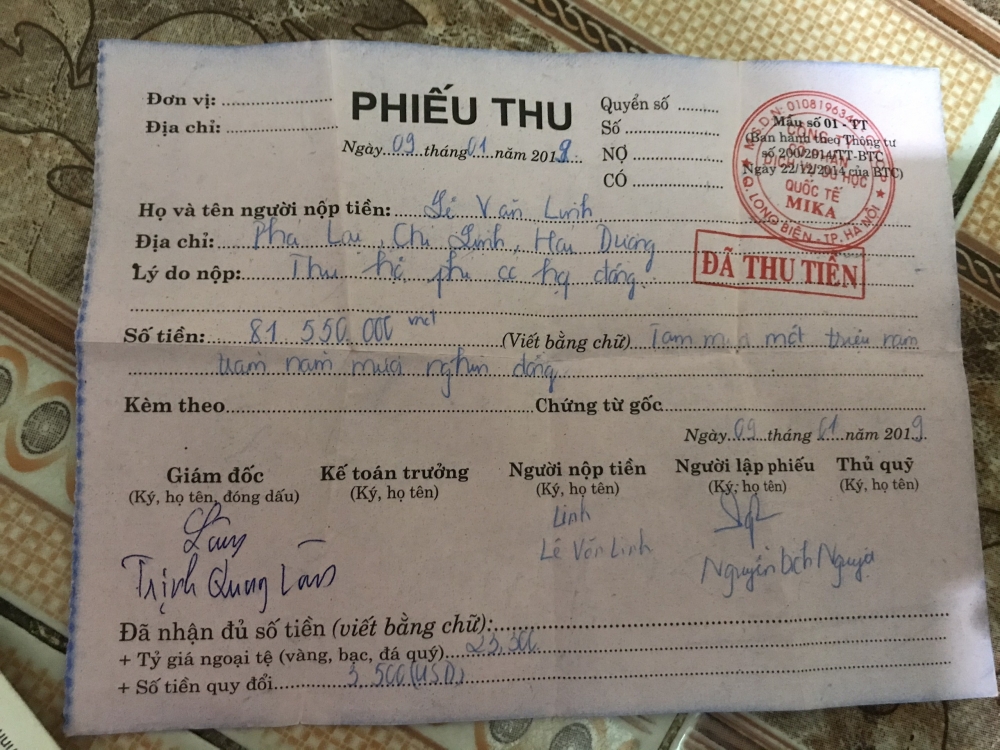 Đơn vị:
Địa chỉ:
PHIẾU THU
Ngày 09 tháng 01 năm 2019
Quyển số
Số
NỢ
CÓ
Mẫu số 01 - PT
(Ban hành theo Thông tư
số 200/2014/TT-BTC
Ngày 22/12/2014 của BTC)
M.S.D.N: 0108196
CÔNG TY
CỔ PHẦN
DỊCH VỤ DU HỌC
QUỐC TẾ
MIKA
Q. LONG BIÊN - TP. HÀ NỘI
ĐÃ THU TIỀN
Họ và tên người nộp tiền: Lê Văn Linh
Địa chỉ: Phả Lại, Chí Linh, Hải Dương
Lý do nộp: Thu hộ phí hợp đồng
Số tiền: 81.550.000 vnđ (Viết bằng chữ) Tám mươi mốt triệu năm
trăm năm mươi nghìn đồng
Kèm theo Chứng từ gốc
Ngày 09 tháng 01 năm 2019
Giám đốc
(Ký, họ tên, đóng dấu)
Kế toán trưởng
(Ký, họ tên)
Người nộp tiền
(Ký, họ tên)
Người lập phiếu
(Ký, họ tên)
Thủ quỹ
(Ký, họ tên)
Linh
Lê Văn Linh
Trịnh Quang Lâm
Nguyễn Bích
Đã nhận đủ số tiền (viết bằng chữ):
+ Tỷ giá ngoại tệ (vàng, bạc, đá quý) 23.300
+ Số tiền quy đổi 3.500 (USD)